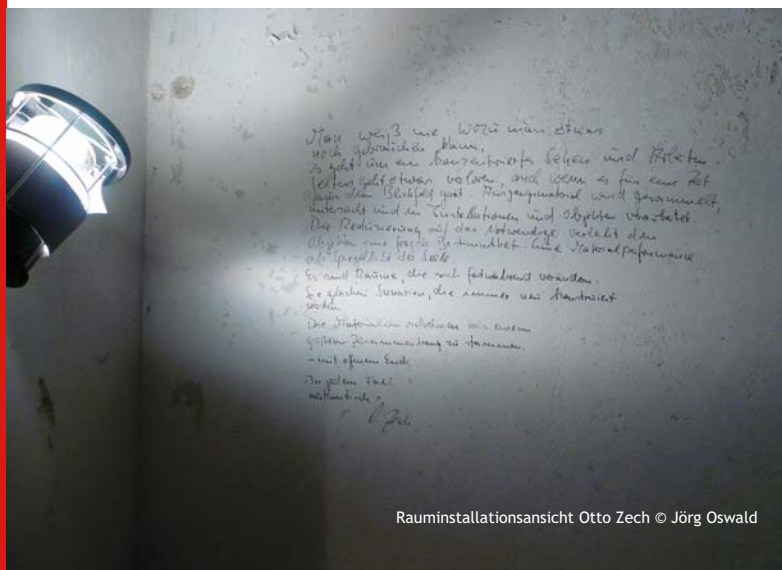 Man weiß nie, wozu man etwas
noch gebrauchen kann,
Es geht um ein konzentriertes Sehen und Arbeiten.
Selten geht etwas verloren, auch wenn es für eine Zeit
dem Blickfeld gerät. Ausgangsmaterial wird gesammelt,
untersucht und in Installationen und Objekten verarbeitet.
Die Reduzierung auf das Notwendige verleiht den
Objekten eine fragile Bestimmtheit. Eine Materialperformance
als Spiegelbild der Seele
Es sind Räume, die sich fortwährend verändern.
Sie gleichen Szenarien, die immer neu konstruiert
werden.
Die Materialien scheinen aus einem
größeren Zusammenhang zu stammen.
- mit offenem Ende
In jedem Fall
authentisch -
O. Zech
Rauminstallationsansicht Otto Zech © Jörg Oswald